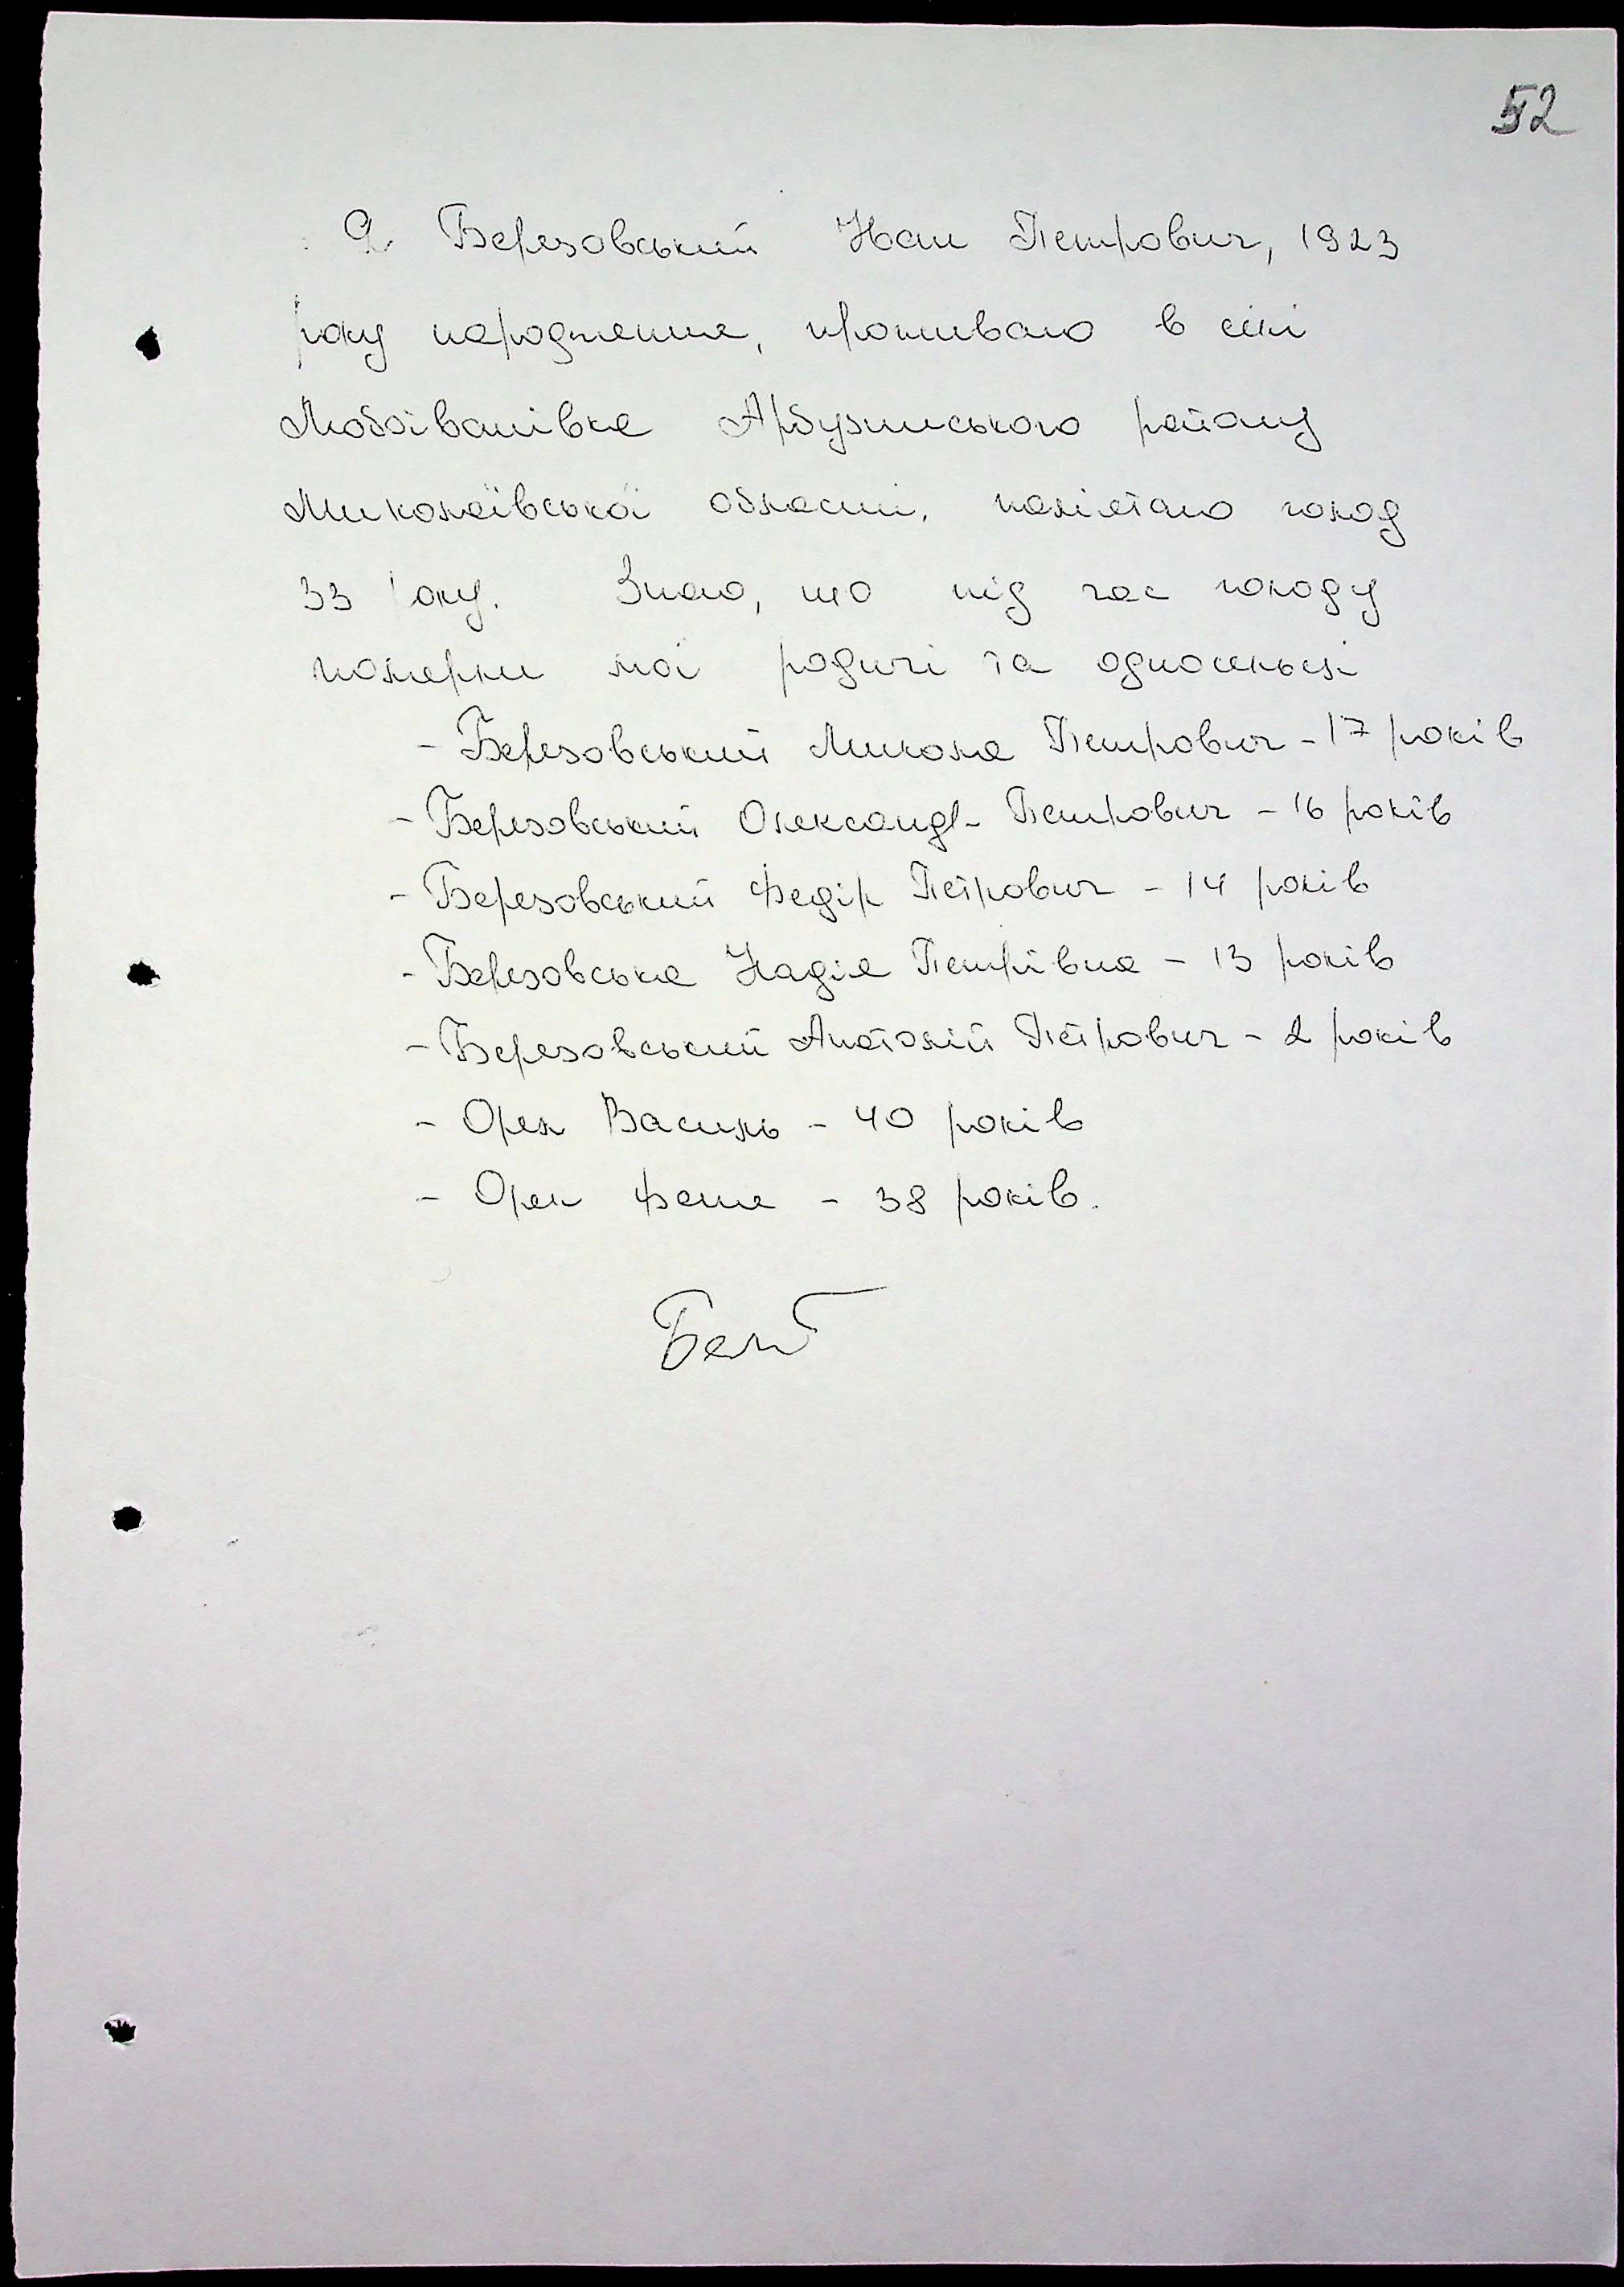 52
Я Березовський Іван Петрович, 1923
року народження, проживаю в селі
Любоіванівка Арбузинського району
Миколаївської області, пам'ятаю голод
33 року. Знаю, що під час голоду
померли мої родичі та односельці
- Березовський Микола Петрович - 17 років
- Березовський Олександр Петрович - 16 років
- Березовський Федір Петрович - 14 років
- Березовська Надія Петрівна - 13 років
- Березовський Анатолій Петрович - 2 років
- Орел Василь - 40 років
- Орел Феня - 38 років.